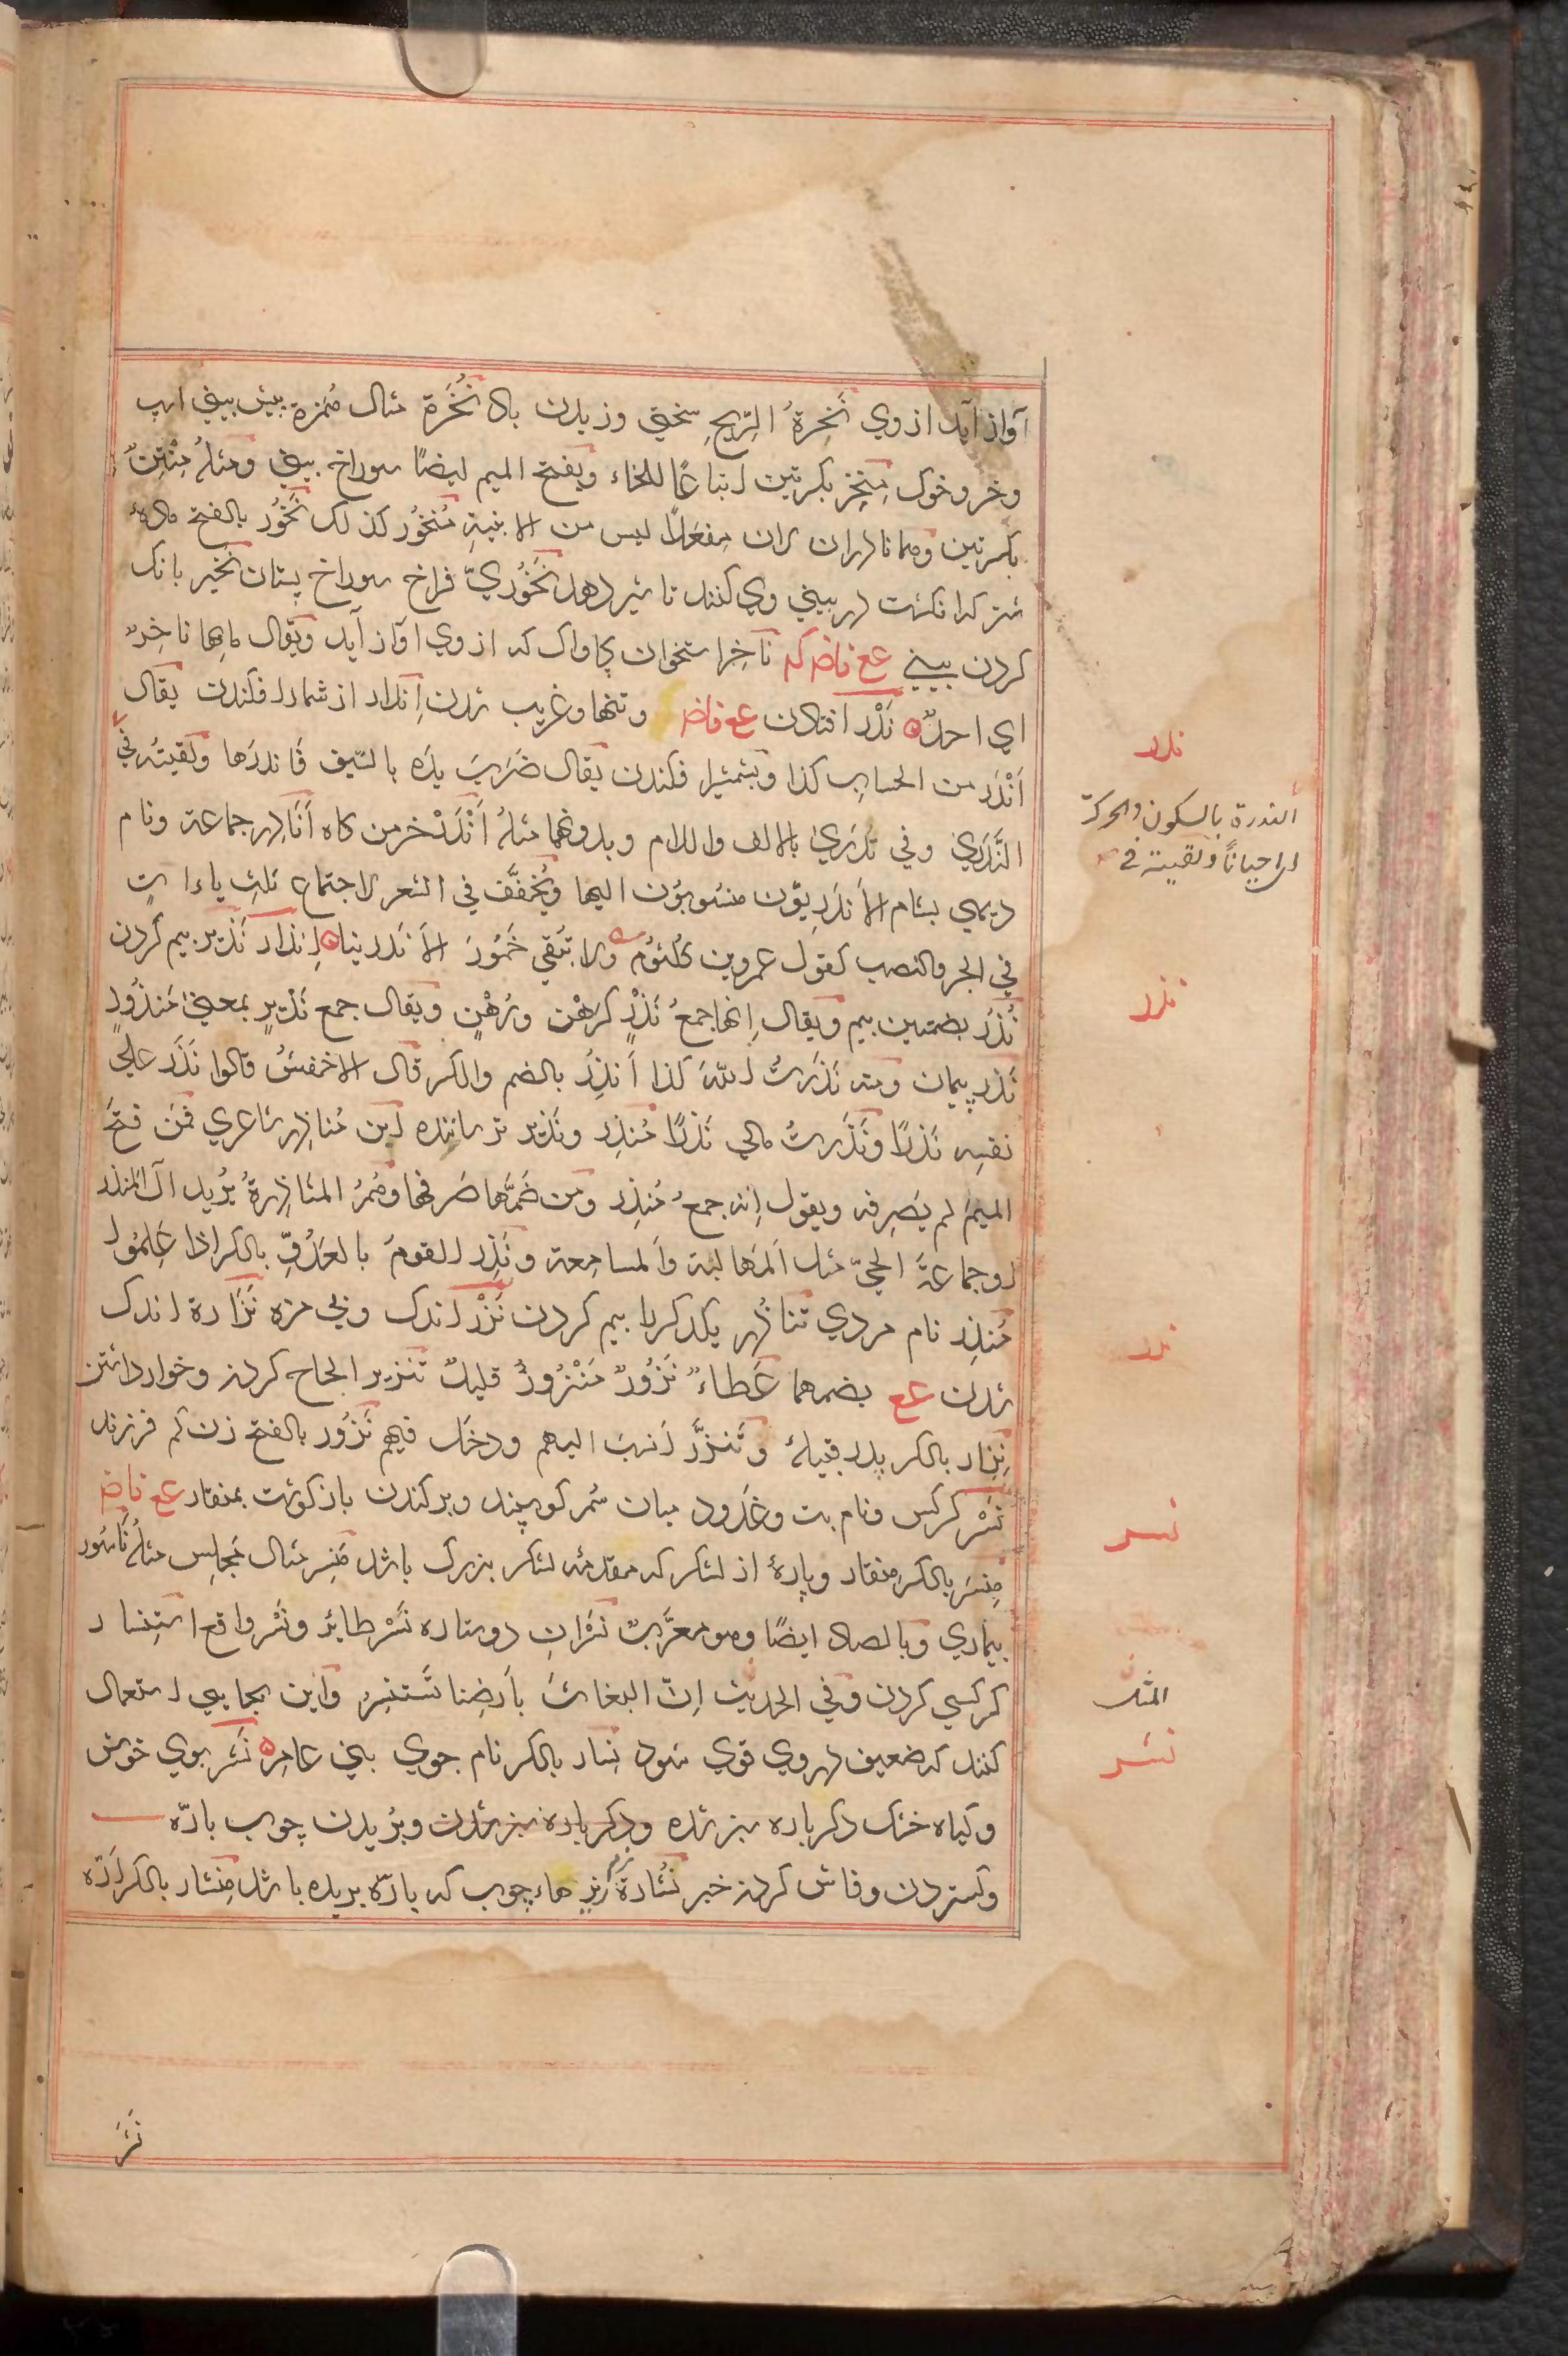 آواز آید از وي نَخِرةُ الرِّیحِ سختی وزیدن باد نُخَرَة مثال هُمَزة پیش بینی اسپ
وخر وخوک مِنْخِر بکسرتین اتباعًا للخاء وبفتح المیم ایضًا سوراخ بینی ومثلهُ مِنْتِنٌ
بکسرتین وهما نادران لان مِفعِلًا لیس من الابنیةِ مُنخُور کذلک نَخُور بالفتح مادۀ
شتر که انکشت در بینی وي کنند تا شیر دهد نَخْوَرِيّ فراخ سوراخ پستان نخیر بانک
کردن ببیني عع ناخر که ناخِر استخوان کاواک که از وي اواز آید ویقال مابها ناخِرٌ
اي احدٌ نَدْر افتادن عع فاض وتنها وغریب شدن اِندار از شمار افکندن یقال
اَنْدَر من الحسابِ کذا وبشمشیر افکندن یقال ضَرَبَ یدَه بالسَّیف فاندرَها ولقیتُه في
النَّدَرَي وفي نَدَرَي بالالف واللام وبدونهما مثلهُ اَنْدَر خرمن کاه اَنادِر جماعة ونام
دیهي بشام الاَندَرِیّون منسوبون الیها ویُخفَّف في الشعر لاجتماع ثلث یاءاتٍ
في الجر والنصب کقول عمرو بن کلثوم ولا تُبقي خُمُورَ الاَندرینا اِنذار نَذیر بیم کردن
نُذُر بضمتین بیم ویقال اِنها جمعُ نَذْرٍ کرَهْن ورُهُن ویقال جمع نَذیرٍ بمعنی مَنذُورٍ
نَذر پیمان ومنه نَذَرتُ للهِ کذا اَنذِرُ بالضم والکسر قال الاخفشُ قالوا نَذَر علی
نفسِه نَذرًا ونَذَرتُ مالي نَذرًا مُنذِر ونَذیر ترساننده ابن مُناذِر شاعري فمَن فتحَ
المیمَ لم یَصرِفه ویقول اِنه جمعُ مُنذِر ومن ضَمَّها صَرفها وهُمُ المناذِرةُ یُرید آل المنذر
او جماعةَ الحيّ مثل المَهالبة والمسامِعة ونَذِر القومُ بالعَدُوِّ بالکسر اذا عَلِمُوا
مُنذِر نام مردي تناذُر یکدکر را بیم کردن نَزْر اندک وبی مزه نَزارة اندک
شدن عع بضمهما عَطاءٌ نَزُورٌ مَنْزُورٌ قلیلٌ تنزیر الحاح کردن وخوار داشتن
نِزار بالکسر پدر قبیلۀ وتَنزَّر اِنتسَبَ الیهم ودخَل فیهم نَزُور بالفتح زن کم فرزند
نَسْر کرکس ونام بت وغدود میان سُم کوسپند وبرکندن باز کوشت بمنقار عع فاض
مِنسَر بالکسر منقار وپارۀ از لشکر که مقدمه لشکر بزرک باشد مَنسِر مثال مَجلِس مثلهُ ناسُور
بیماري وبالصاد ایضًا وهو معرَّبٌ نَسْرانِ دو ستاره نَسْر طایر ونَسْر واقع استنسار
کرکسي کردن وفي الحدیث اِنّ البغاثَ بأرضِنا تَستَنسِرُ واین بجایي استعمال
کنند که ضعیف در وي قوي شود نِسار بالکسر نام جوي بني عامر نَشر بوي خوش
وکیاه خشک دکر باره سبز شده ودکر باره سبز شدن وبُریدن چوب بارّه
وکستردن وفاش کردن خبر نُشارة ریزهاء چوب که بارّه بریده باشد مِنشار بالکسر اَرّه
نَشَر
ندر
الندرة بالسکون والحرکة
اي احیانًا ولقیته في
نذر
نزر
نسر
المثل
نشر